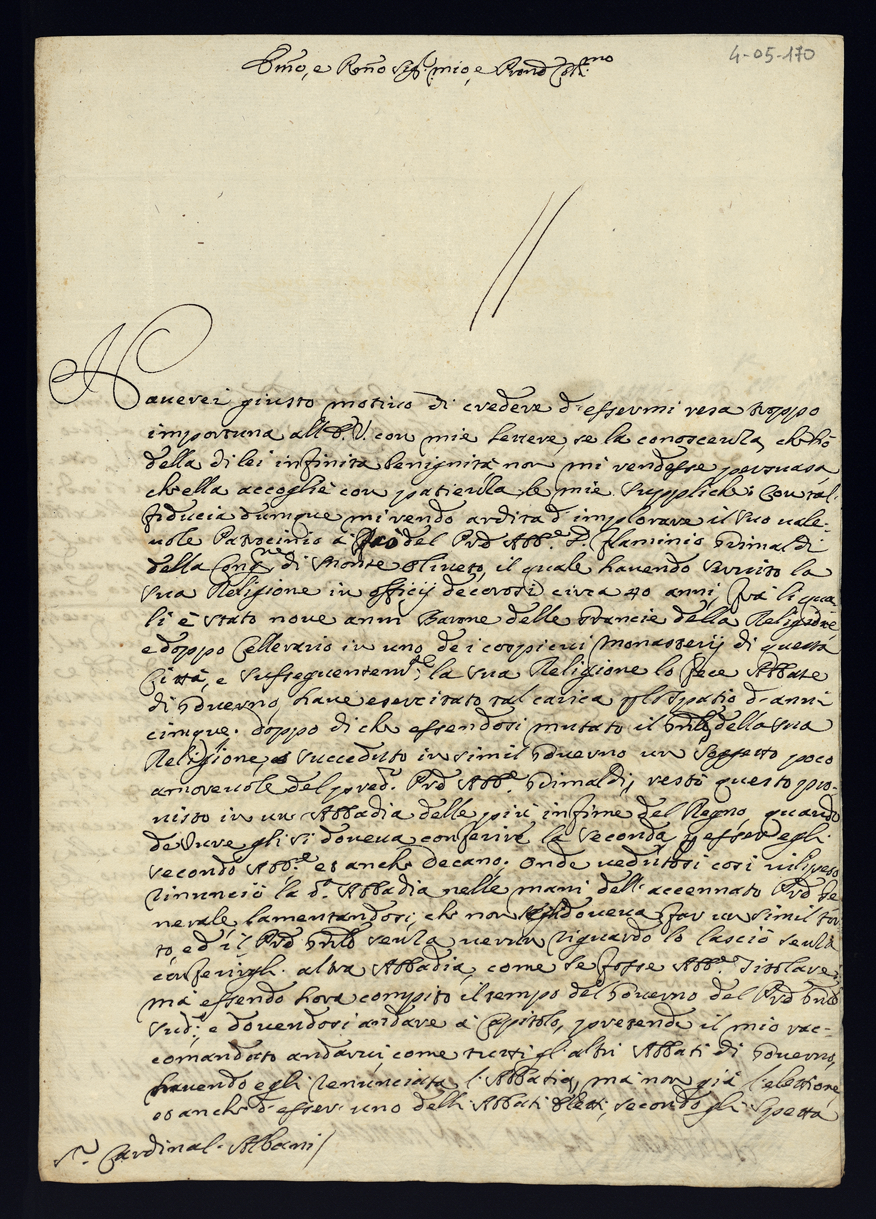 4-05-170
Em̃o, e Rm̃o Sig.r mio, e Pron̄ Col.mo
Hauerei giusto motiuo di credere d'essermi resa troppo
importuna all'E.V. con mie lettere, se la conoscenza, che hò
della di lei infinita benignità non mi rendesse persuasa,
ch'ella accoglie con patienza le mie suppliche. Con tal
fiducia dunque mi rendo ardita d'implorare il suo uale-
uole Patrocinio à prò del Prē Abb.e D. Flaminio Grimaldi
della Cong.ne di Monte Oliueto, il quale hauendo seruito la
sua Religione in officij decorosi circa 40 anni, frà li qua
li è stato noue anni Barone delle Francie della Religione,
e doppo Cellerario in uno de i cospicui Monasterij di questa
Città, e susseguentem.te la sua Religione lo fece Abbate
di Gouerno, haue esercitato tal carica p lo spatio d'anni
cinque. Doppo di che essendosi mutato il Gn̄le della sua
Religione, e succeduto in simil Gouerno un soggetto poco
amoreuole del pred.o Prē Abb.e Grimaldi, restò questo pro-
uisto in un Abbadia delle più infime del Regno, quando
de Iure gli si doueua conferire la seconda, p esser egli
secondo Abb.e et anche Decano. Onde uedutosi così uilipeso
rinunciò la d.a Abbadia nelle mani dell'accennato Prē Ge
nerale, lamentandosi, che non doueua far un simil tor
to, ed il Prē Gn̄le senza uerun riguardo lo lasciò senza
conferirgli altra Abbadia, come se fosse Abb.e Titolare;
ma essendo hora compito il tempo del Gouerno del Prē Gn̄le
sud.o e douendosi andare à Capitolo, pretende il mio rac-
comandato andarui, come tutti gl'altri Abbati di Gouerno,
hauendo egli renunciata l'Abbatia, mà non già l'elettione,
et anche d'esser uno delli Abbati Eletti, secondo gli spetta
S.r Cardinal Albani